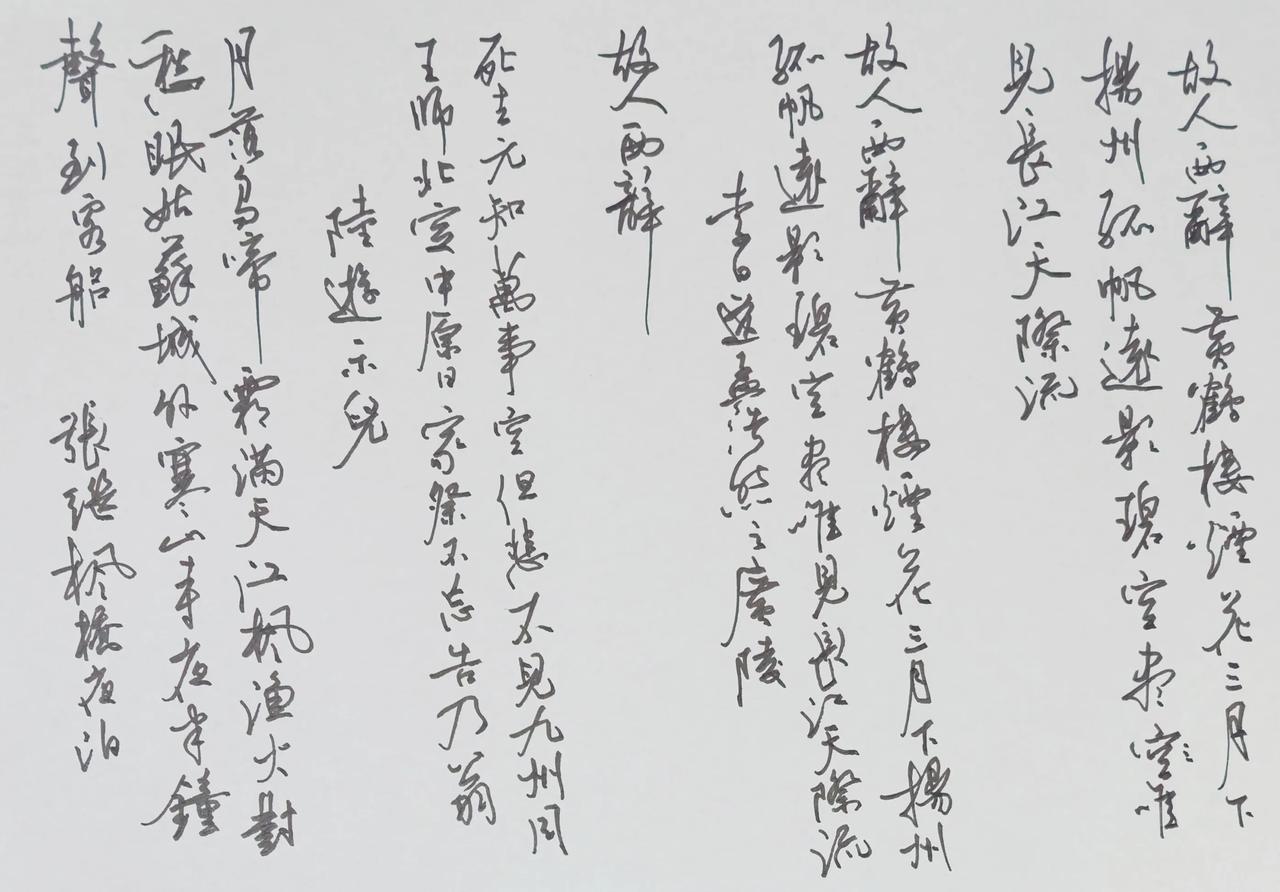 故人西辭黃鶴樓煙花三月下
揚州孤帆遠影碧空尽空唯
見長江天際流
故人西辭黃鶴樓煙花三月下揚州
孤帆遠影碧空尽唯見長江天際流
李白送孟浩然之廣陵
故人西辭
死去元知萬事空但悲不見九州同
王師北定中原日家祭不忘告乃翁
陸遊示兒
月落烏啼霜滿天江枫漁火對
愁眠姑蘇城外寒山寺夜半鐘
聲到客船 張繼枫橋夜泊